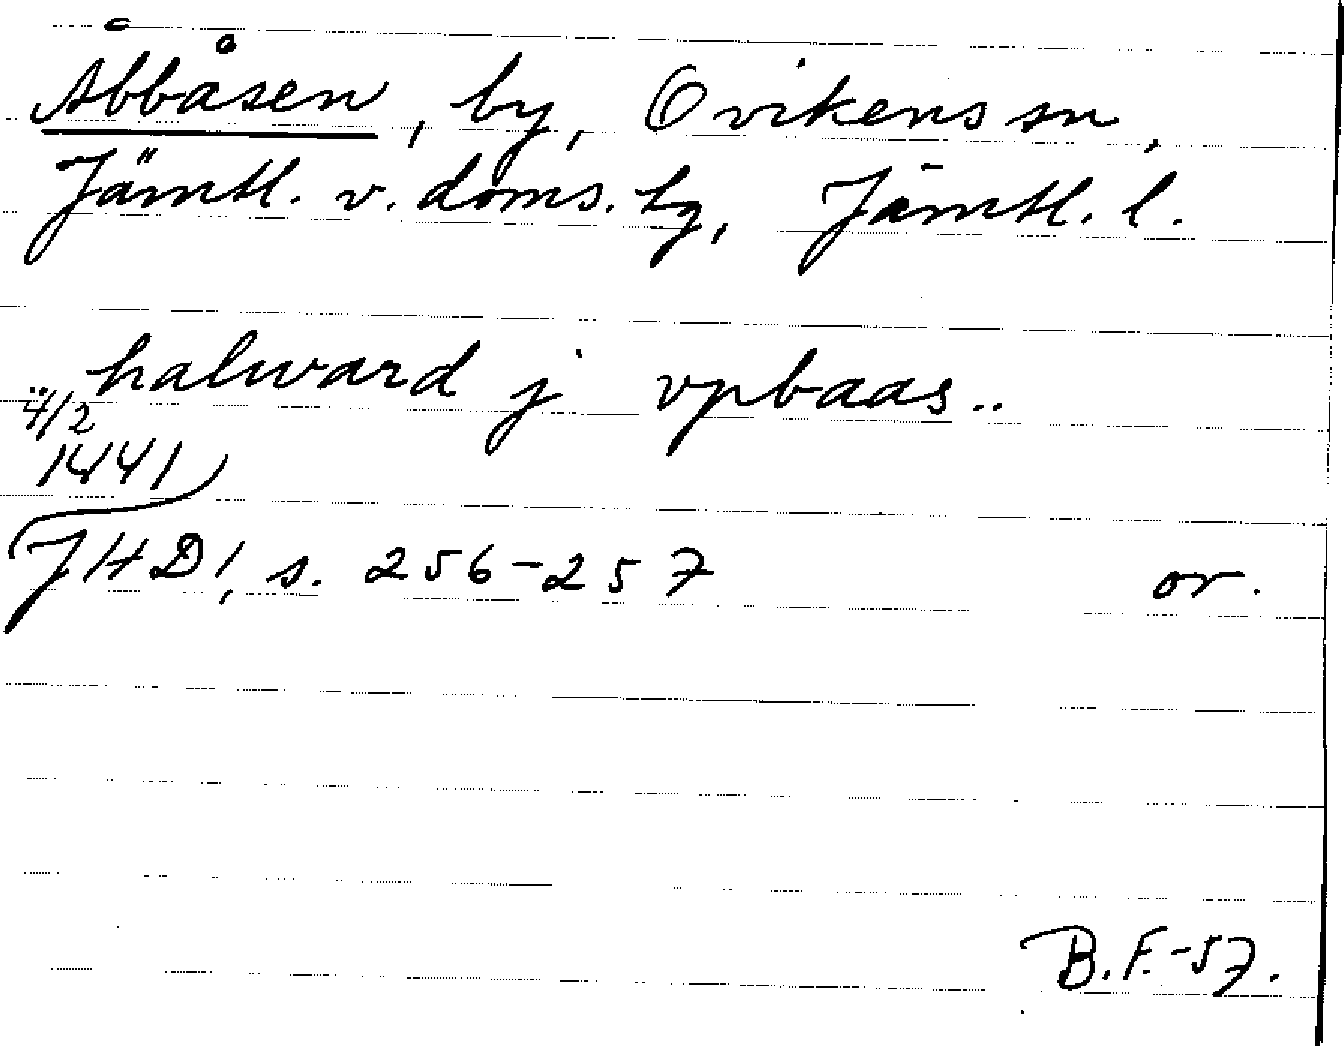 Åbbåsen, by, Ovikens sn,
Jämtl. v. doms. tg, Jämtl. l.
halward j vpbaas..
4/2
1441
JHD1, s. 256-257 or.
B.F.-57.